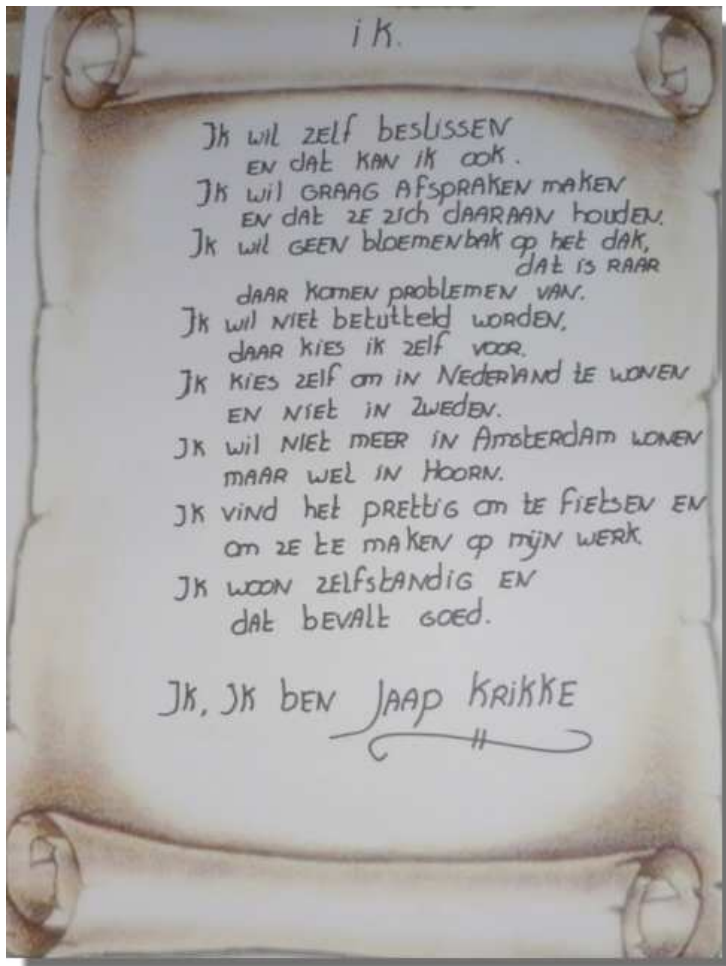 ik.
Ik wil zelf beslissen
en dat kan ik ook.
Ik wil graag afspraken maken
en dat ze zich daaraan houden.
Ik wil geen bloemenbak op het dak,
dat is raar
daar komen problemen van.
Ik wil niet betutteld worden,
daar kies ik zelf voor.
Ik kies zelf om in Nederland te wonen
en niet in Zweden.
Ik wil niet meer in Amsterdam wonen
maar wel in Hoorn.
Ik vind het prettig om te fietsen en
om ze te maken op mijn werk.
Ik woon zelfstandig en
dat bevalt goed.
Ik, Ik ben Jaap Krikke